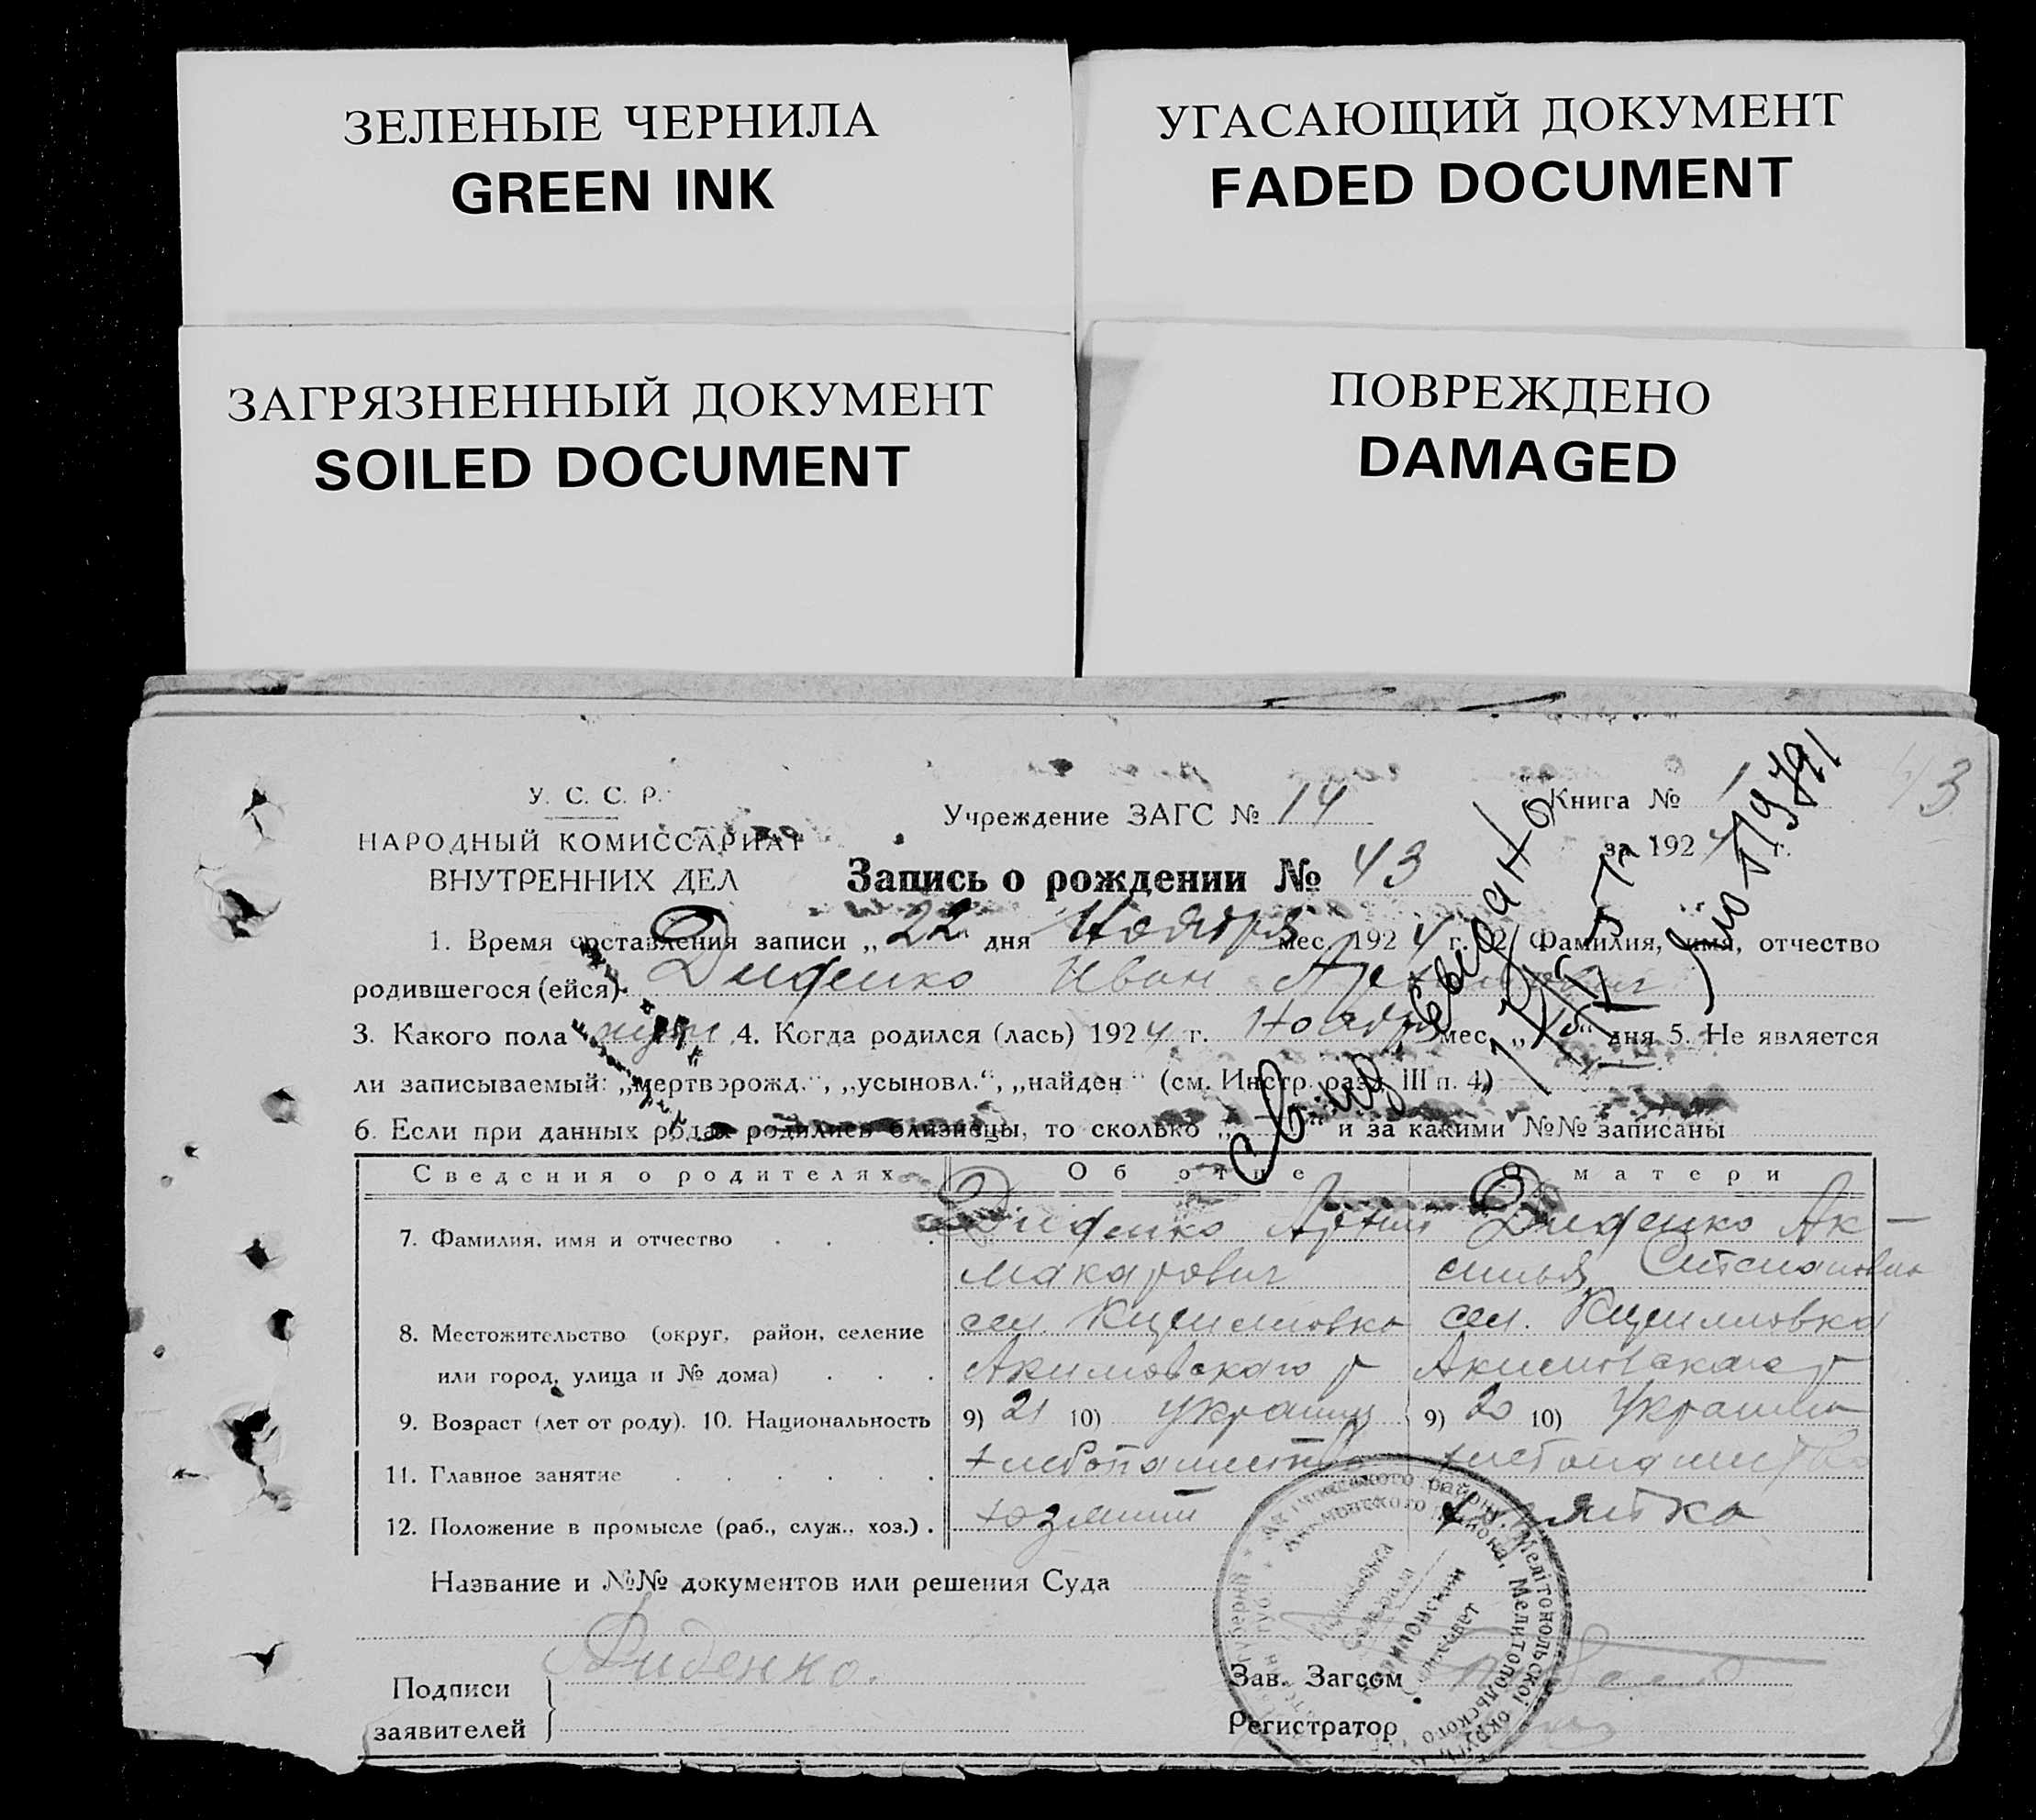 ЗЕЛЕНЫЕ ЧЕРНИЛА
GREEN INK
УГАСАЮЩИЙ ДОКУМЕНТ
FADED DOCUMENT
ЗАГРЯЗНЕННЫЙ ДОКУМЕНТ
SOILED DOCUMENT
ПОВРЕЖДЕНО
DAMAGED
У. С. С. Р.
НАРОДНЫЙ КОМИССАРИАТ
ВНУТРЕННИХ ДЕЛ
Учреждение ЗАГС № 14
Книга № 1
за 1924 г.
43
Запись о рождении № 43
1. Время составления записи „22" дня Ноября мес. 1924 г. 2. Фамилия, имя, отчество
родившегося (ейся) Диденко Иван
3. Какого пола муж 4. Когда родился (лась) 1924 г. Ноября мес. „15" дня 5. Не является
ли записываемый: „мертворожд.", „усыновл.", „найден" (см. Инстр. разд. III п. 4)
6. Если при данных родах родились близнецы, то сколько „ " и за какими №№ записаны
Сведения о родителях
Об отце
О матери
7. Фамилия, имя и отчество
Диденко
Макарович
Диденко Ак-
синья
8. Местожительство (округ, район, селение
или город, улица и № дома)
сел.
Акимовского р
сел.
Акимовского р
9. Возраст (лет от роду). 10. Национальность
9) 21 10) украин
9) 20 10) Украин
11. Главное занятие
хлебопашество
хлебопашество
12. Положение в промысле (раб., служ., хоз.)
хозяин
хозяйка
Название и №№ документов или решения Суда
Подписи
заявителей
Диденко.
Зав. Загсом
Регистратор